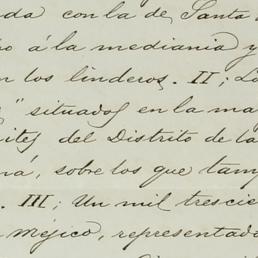 da con la de Santa
o á la mediania y
n los linderos. II; L
" situados en la ma
ites del Distrito de la
ná, sobre los que tam
. III; Un mil trescie
Méjico, representada